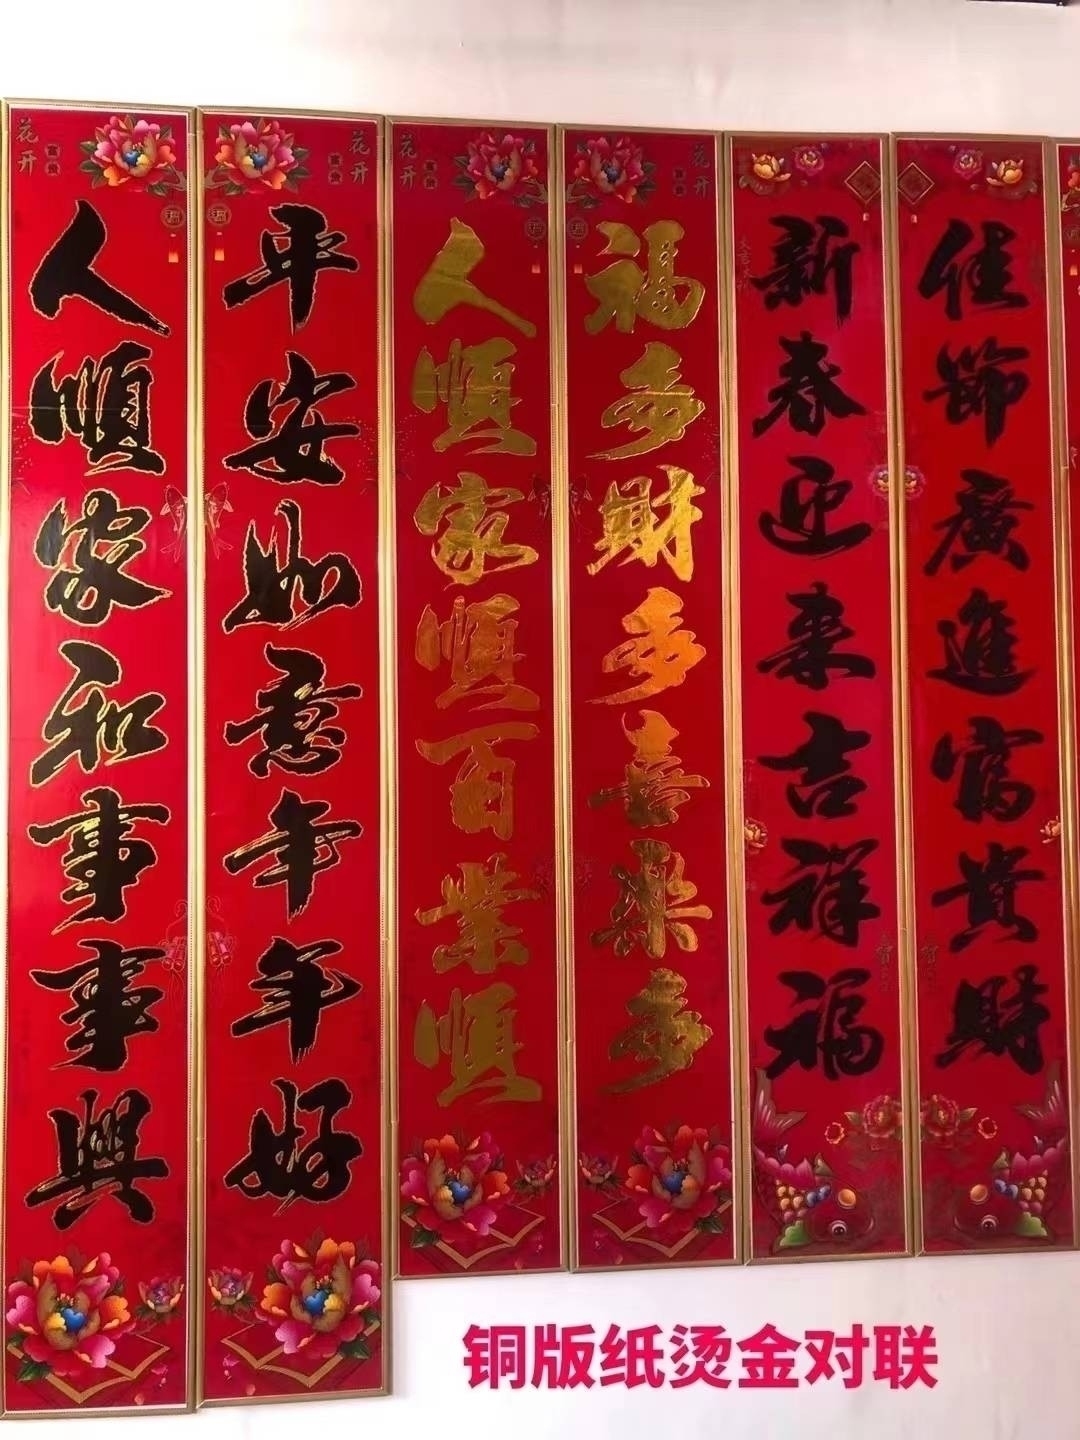 花开
富贵
人順家和事事興
花开
富贵
平安如意年年好
花开
富贵
人順家順百業順
花开
富贵
福多財多喜樂多
新春迎来吉祥福
佳節廣進富貴財
铜版纸烫金对联